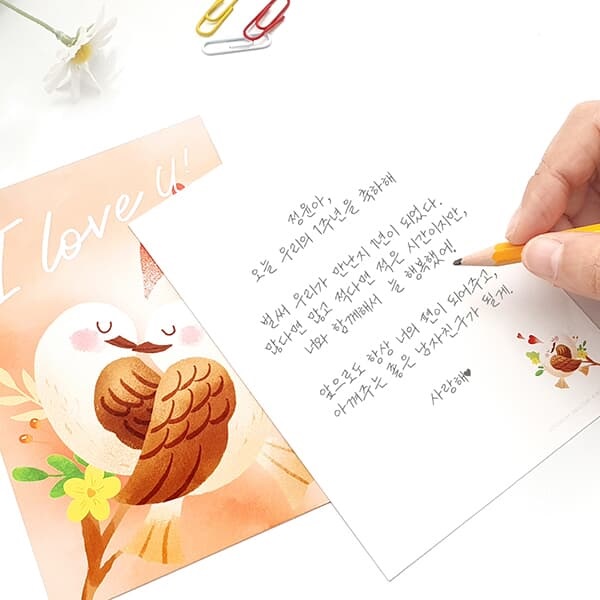 I love u!
정윤아,
오늘 우리의 1주년을 축하해
벌써 우리가 만난지 1년이 되었다.
많다면 많고 적다면 적은 시간이지만,
너와 함께해서 늘 행복했어!
앞으로도 항상 너의 편이 되어주고,
아껴주는 좋은 남자친구가 될게.
사랑해♥